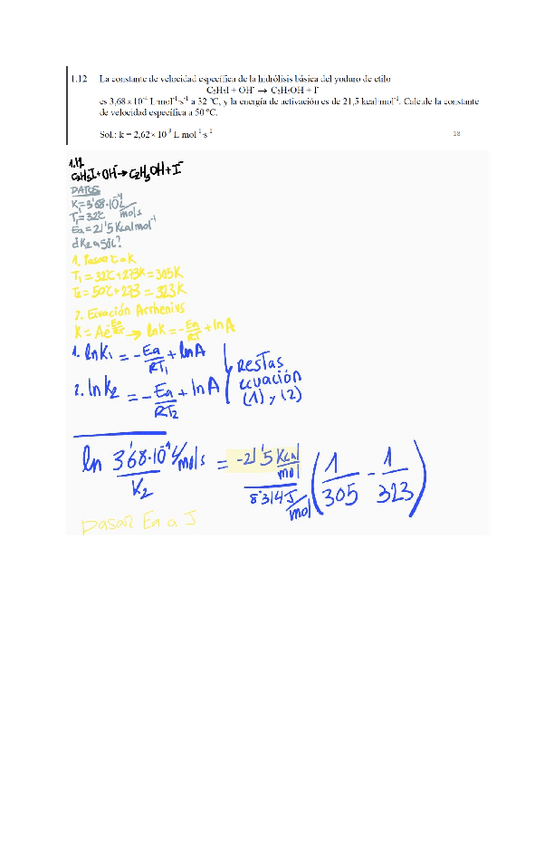 1.12 La constante de velocidad específica de la hidrólisis básica del yoduro de etilo
C₂H₅I + OH⁻ → C₂H₅OH + I⁻
es 3,68 x 10⁻⁴ L mol⁻¹ s⁻¹ a 32 ºC, y la energía de activación es de 21,5 kcal mol⁻¹. Calcule la constante
de velocidad específica a 50 ºC.
Sol.: k = 2,62 x 10⁻³ L mol⁻¹ s⁻¹
18
1.12
C₂H₅I + OH⁻ → C₂H₅OH + I⁻
DATOS
K₁ = 3'68·10⁻⁴ L/mol s
T₁ = 32ºC
Ea = 21'5 Kcal mol⁻¹
¿K₂ a 50ºC?
1. Pasar ºC a K
T₁ = 32ºC + 273K = 305K
T₂ = 50ºC + 273 = 323K
2. Ecuación Arrhenius
K = Ae^(-Ea/RT) → lnK = -Ea/RT + lnA
1. lnK₁ = -Ea/RT₁ + lnA
2. lnK₂ = -Ea/RT₂ + lnA
RESTAS
ecuación
(1) y (2)
ln 3'68·10⁻⁴ L/mol s / K₂ = -21'5 Kcal/mol / 8'314 J/mol (1/305 - 1/323)
Pasar Ea a J